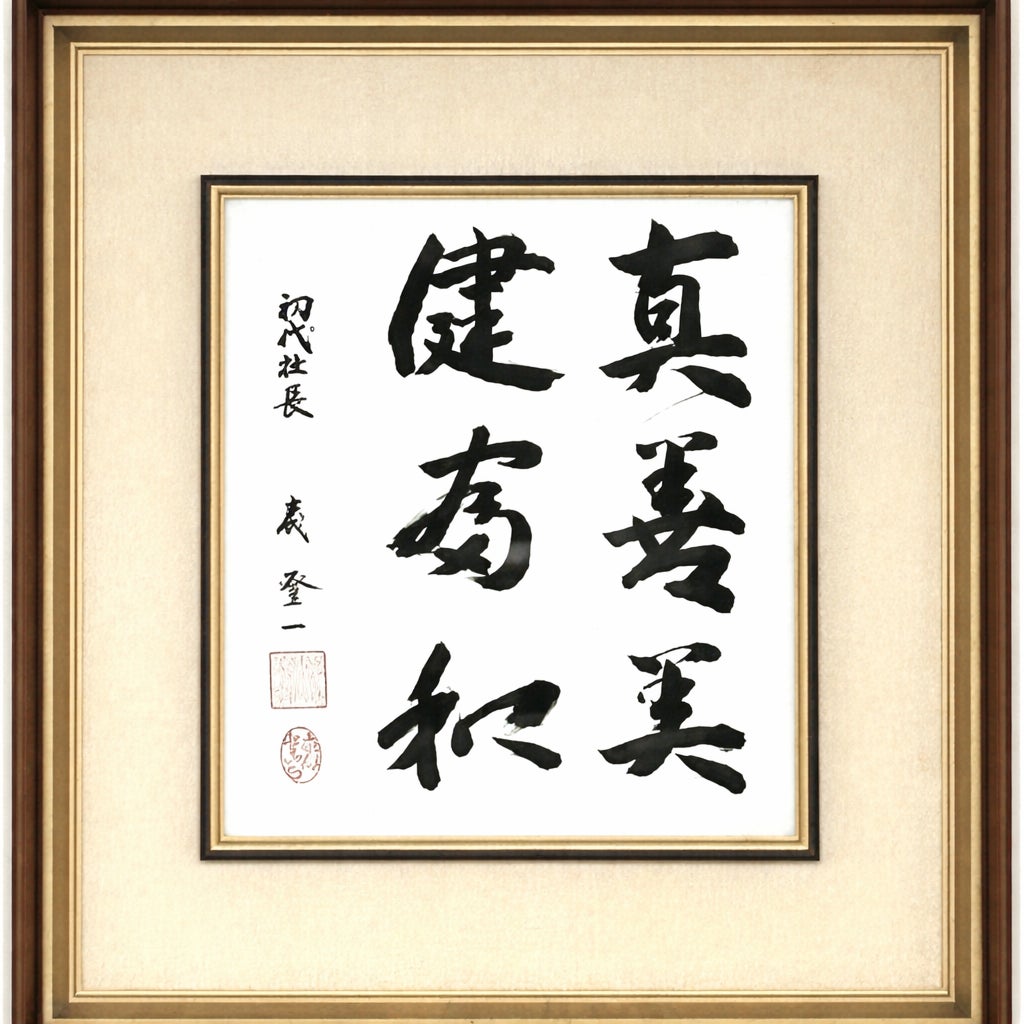 真善美
健和
初代社長 登一